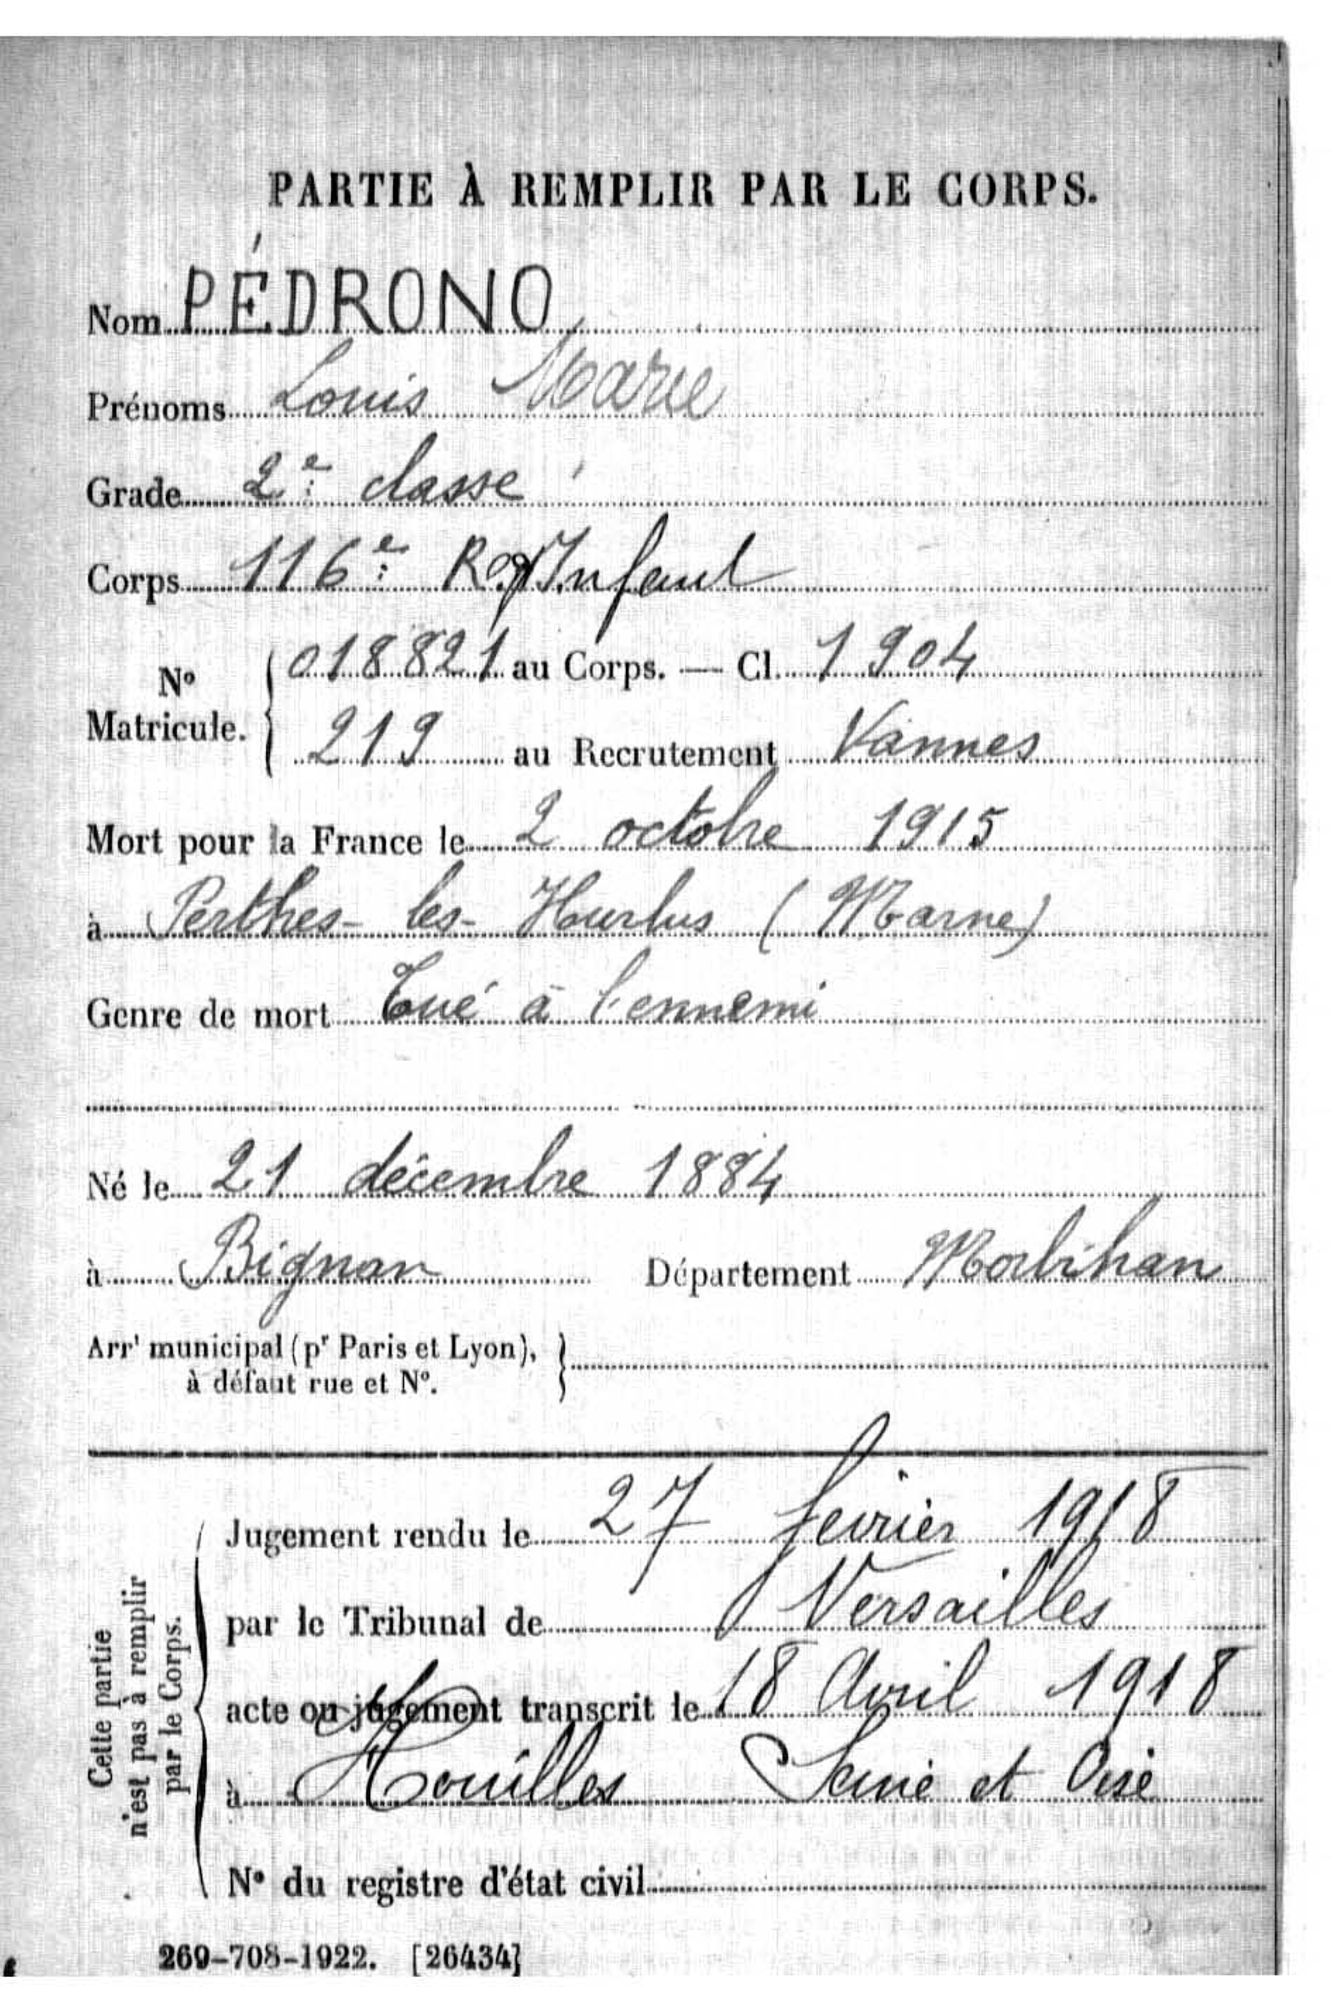 PARTIE À REMPLIR PAR LE CORPS.
Nom PÉDRONO
Prénoms Louis Marie
Grade 2e classe
Corps 116e Reg Infant
No Matricule. 018821 au Corps. — Cl. 1904
219 au Recrutement Vannes
Mort pour la France le 2 octobre 1915
à Perthes-les-Hurlus (Marne)
Genre de mort Tué à l'ennemi
Né le 21 décembre 1884
à Bignan Département Morbihan
Arrt municipal (pr Paris et Lyon),
à défaut rue et No.
Cette partie
n'est pas à remplir
par le Corps.
Jugement rendu le 27 février 1918
par le Tribunal de Versailles
acte ou jugement transcrit le 18 Avril 1918
à Houilles Seine et Oise
No du registre d'état civil
269-708-1922. [26434]